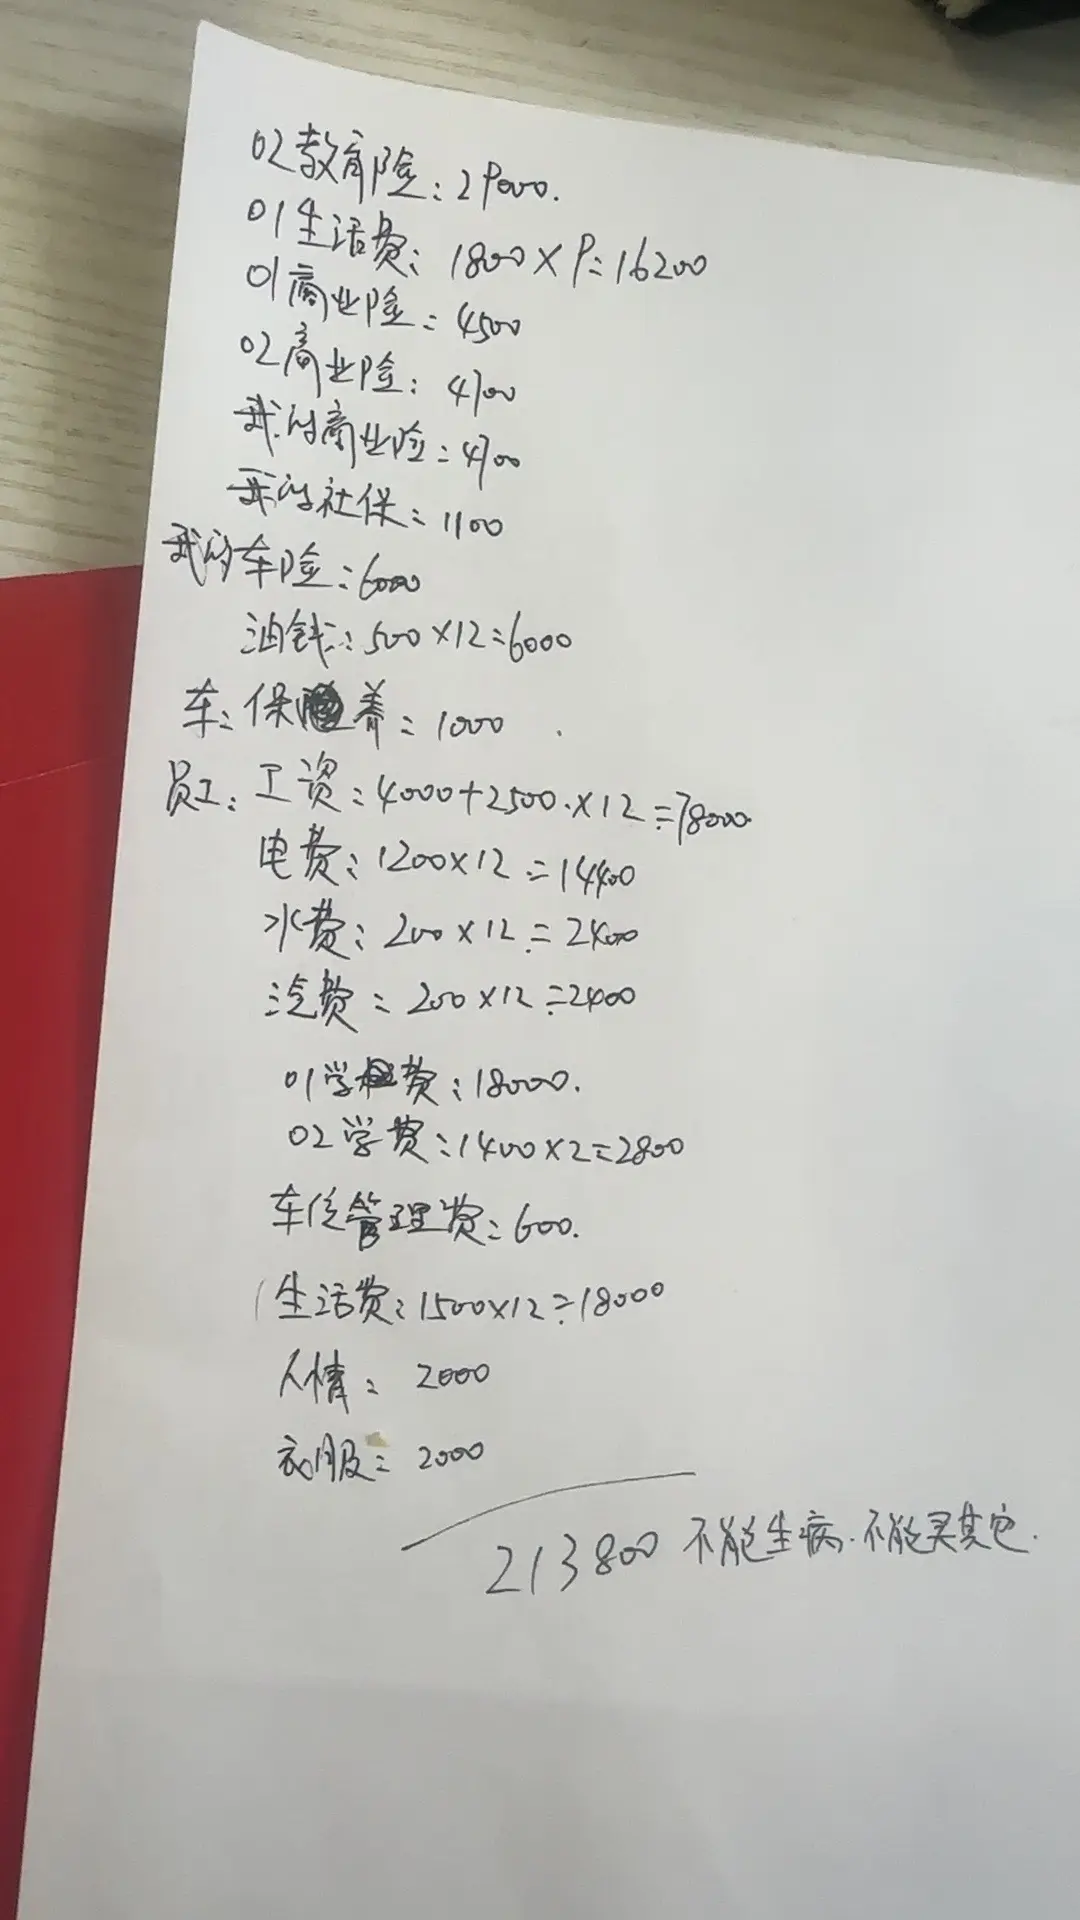 02教育险：29000.
01生活费：1800×9=16200
01商业险=4500
02商业险：4700
我的商业险=4700
我的社保=1100
我的车险：6000
油钱：500×12=6000
车：保养=1000
员工：工资：4000+2500.×12=78000
电费：1200×12=14400
水费：200×12=2400
汽费=200×12=2400
01学费：18000.
02学费：1400×2=2800
车位管理费：600.
生活费：1500×12=18000
人情：2000
衣服：2000
213800 不能生病.不能买其它.